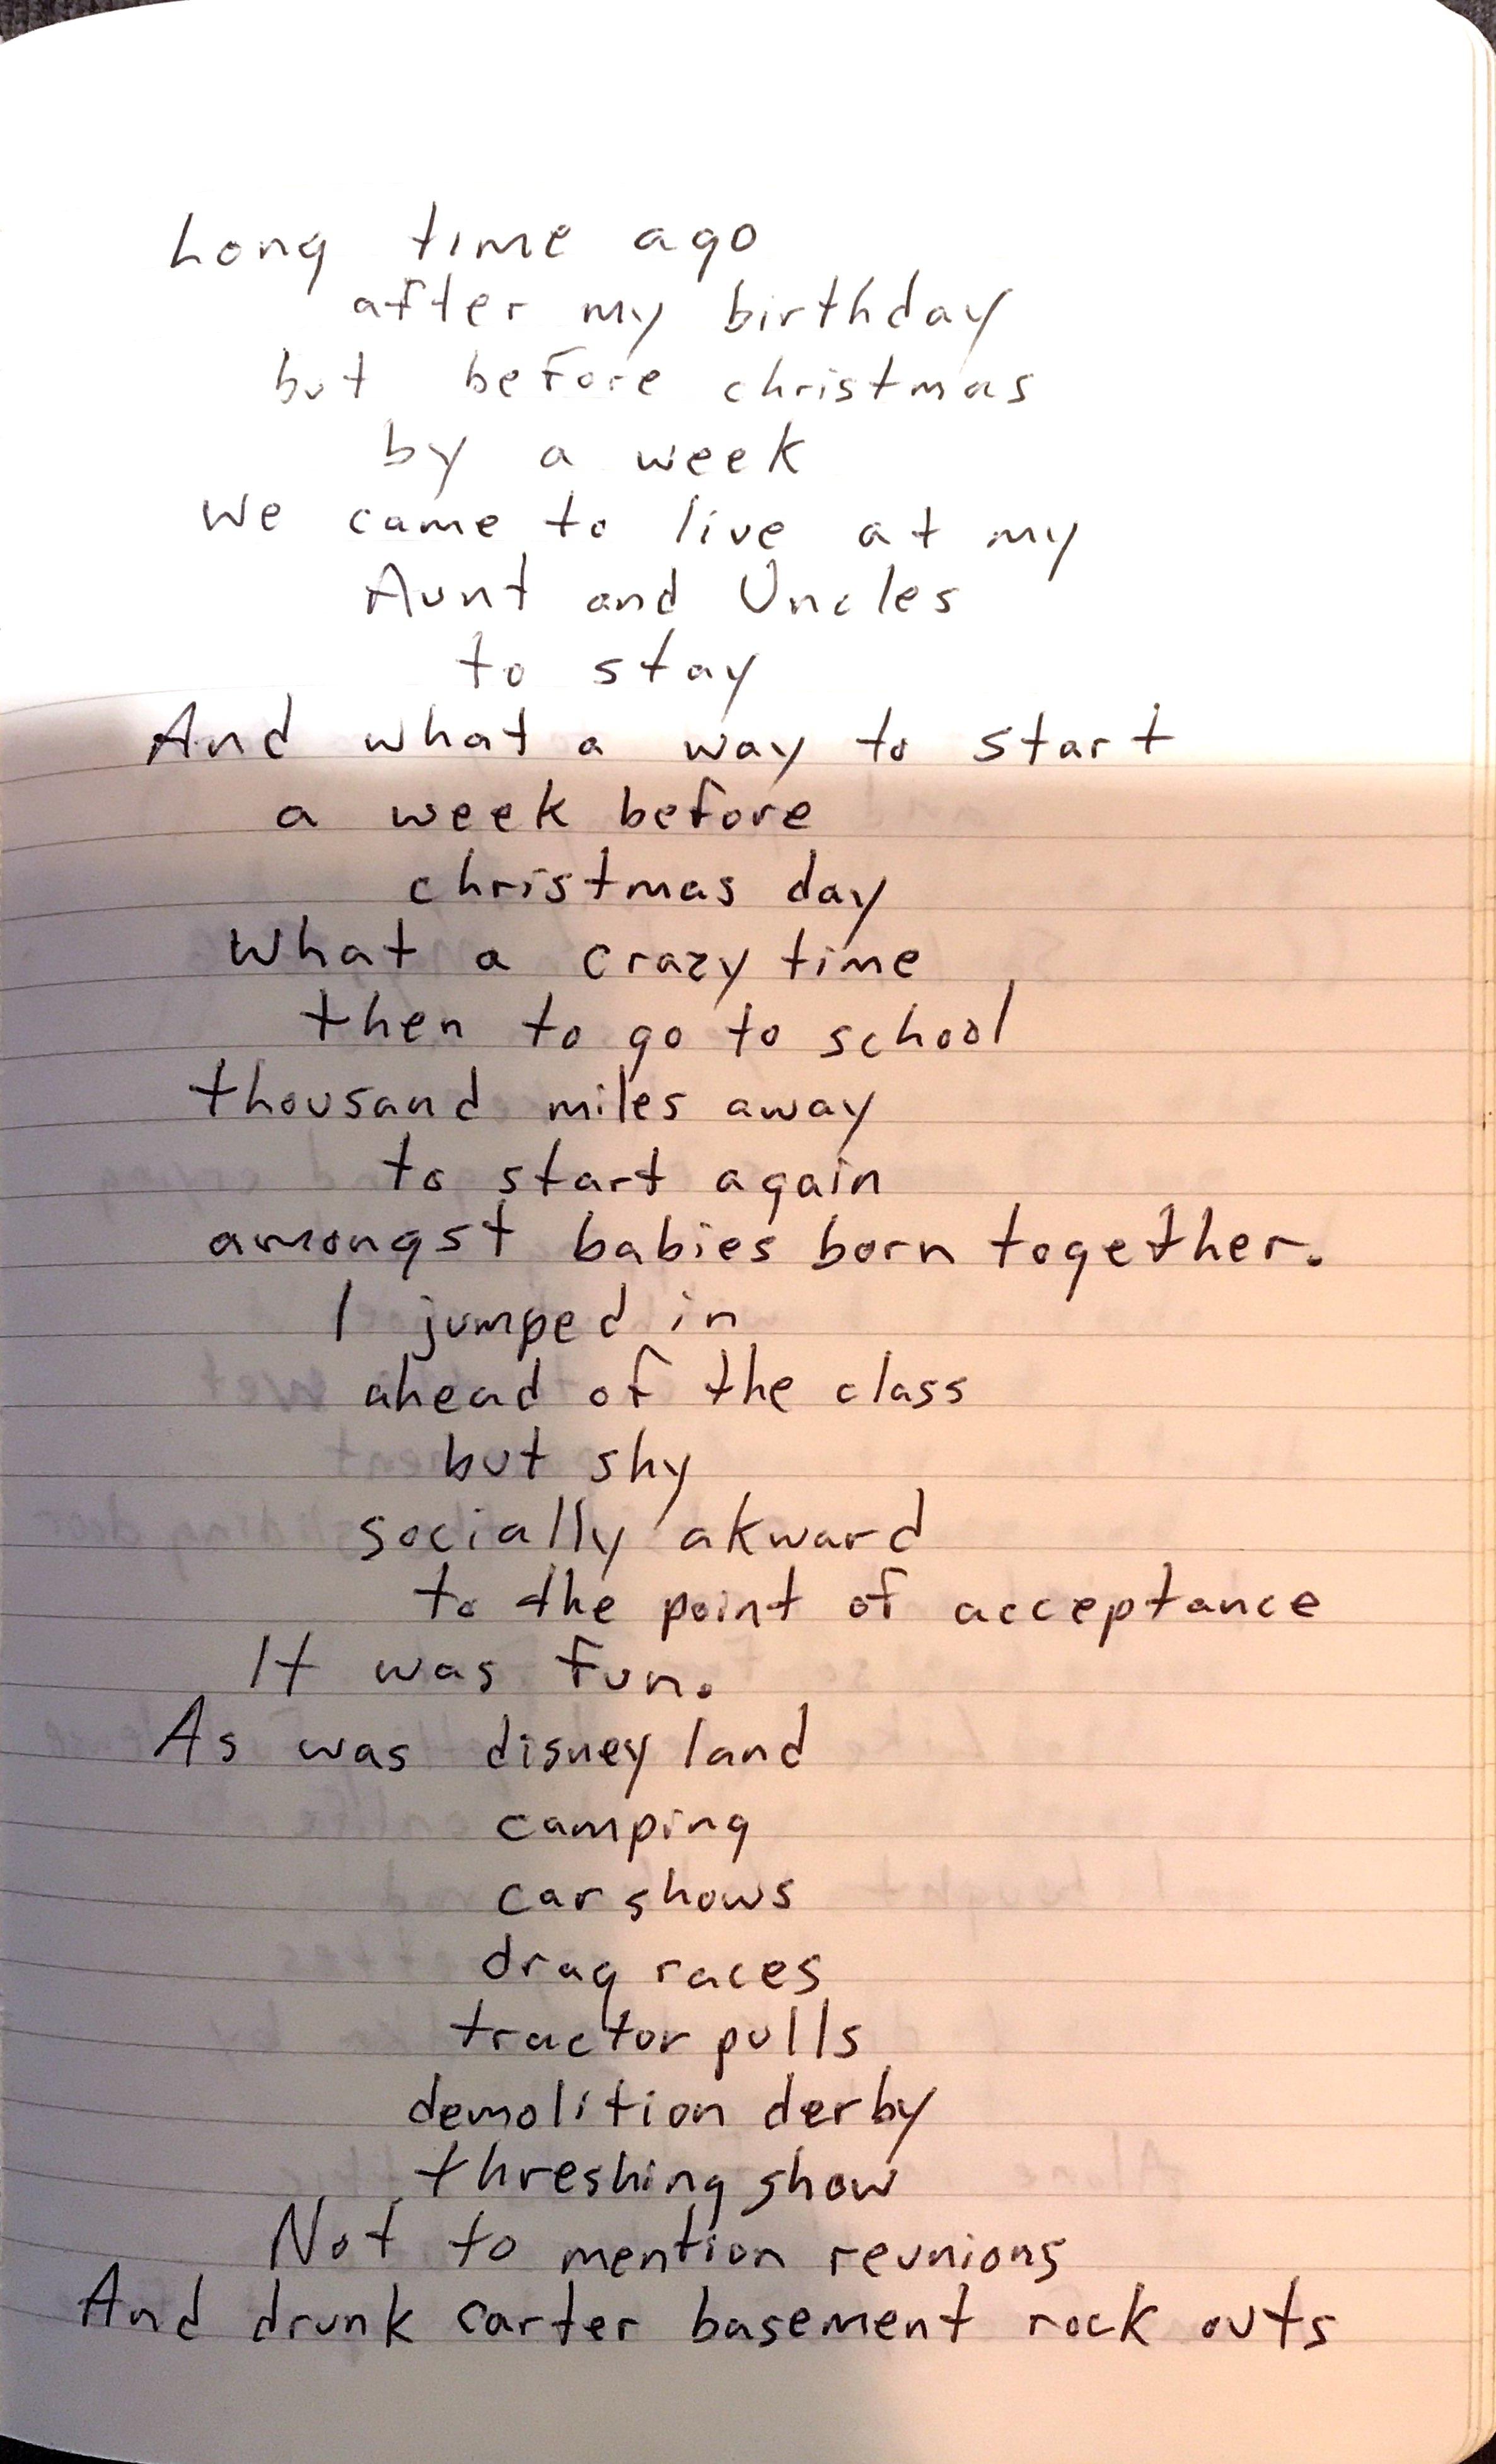 Long time ago
after my birthday
but before christmas
by a week
We came to live at my
Aunt and Uncles
to stay
And what a way to start
a week before
christmas day
What a crazy time
then to go to school
thousand miles away
to start again
amongst babies born together.
I jumped in
ahead of the class
but shy
socially akward
to the point of acceptance
It was fun.
As was disney land
camping
car shows
drag races
tractor pulls
demolition derby
threshing show
Not to mention reunions
And drunk carter basement rock outs